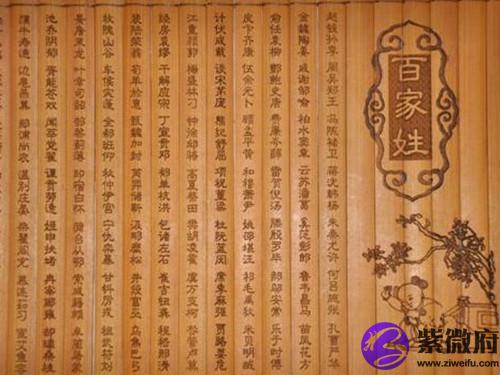 百家姓
赵钱孙李 周吴郑王 冯陈褚卫 蒋沈韩杨 朱秦尤许 何吕施张 孔曹严华
金魏陶姜 戚谢邹喻 柏水窦章 云苏潘葛 奚范彭郎 鲁韦昌马 苗凤花方
俞任袁柳 酆鲍史唐 费廉岑薛 雷贺倪汤 滕殷罗毕 郝邬安常 乐于时傅
皮卞齐康 伍余元卜 顾孟平黄 和穆萧尹 姚邵堪汪 祁毛禹狄 米贝明臧
计伏成戴 谈宋茅庞 熊纪舒屈 项祝董梁 杜阮蓝闵 席季麻强 贾路娄危
江童颜郭 梅盛林刁 钟徐邱骆 高夏蔡田 樊胡凌霍 虞万支柯 昝管卢莫
经房裘缪 干解应宗 丁宣贲邓 郁单杭洪 包诸左石 崔吉钮龚 程嵇邢滑
裴陆荣翁 荀羊於惠 甄加封 芮羿储靳 汲邴糜松 井段富巫 乌焦巴弓
牧隗山谷 车侯宓蓬 全郗班仰 秋仲伊宫 宁仇栾暴 甘钭厉戎 祖武符刘
景詹束龙 叶幸司韶 郜黎蓟薄 印宿白怀 蒲台从鄂 索咸籍赖 卓蔺屠蒙
池乔阴郁 胥能苍双 闻莘党翟 谭贡劳逄 姬申扶堵 冉宰郦雍 郤璩桑桂
濮牛寿通 边扈燕冀 郏浦尚农 温别庄晏 柴瞿阎充 慕连茹习 宦艾鱼容
紫微府
www.ziweifu.com